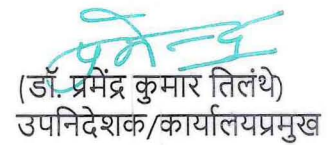 प्रमेन्द्र
(डॉ. प्रमेंद्र कुमार तिलंथे)
उपनिदेशक/कार्यालयप्रमुख